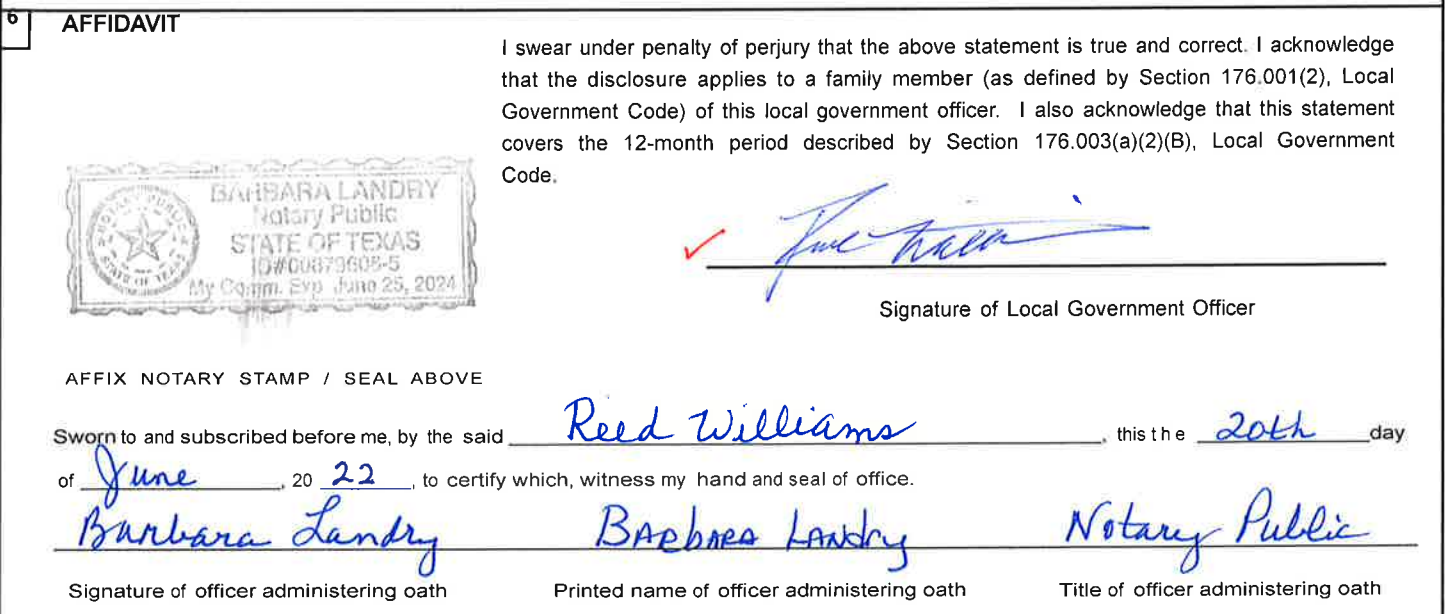 6 AFFIDAVIT
I swear under penalty of perjury that the above statement is true and correct. I acknowledge
that the disclosure applies to a family member (as defined by Section 176.001(2), Local
Government Code) of this local government officer. I also acknowledge that this statement
covers the 12-month period described by Section 176.003(a)(2)(B), Local Government
Code.
BARBARA LANDRY
Notary Public
STATE OF TEXAS
My Comm. Exp June 25, 2024
NOTARY PUBLIC
STATE OF TEXAS
Signature of Local Government Officer
AFFIX NOTARY STAMP / SEAL ABOVE
Sworn to and subscribed before me, by the said Reed Williams, this the 20th day
of June, 20 22, to certify which, witness my hand and seal of office.
Barbara Landry BARbARA LANdry Notary Public
Signature of officer administering oath Printed name of officer administering oath Title of officer administering oath